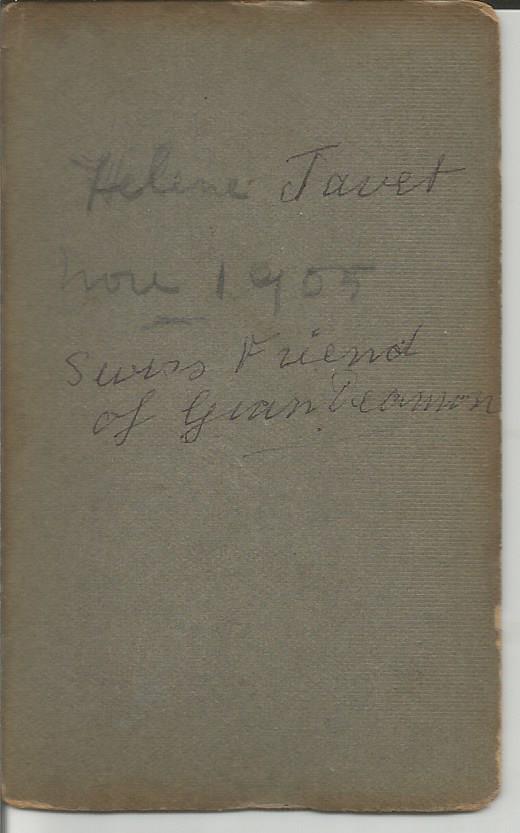 Helene Javet
Nov 1905
Swiss Friend
of Gran Deamon